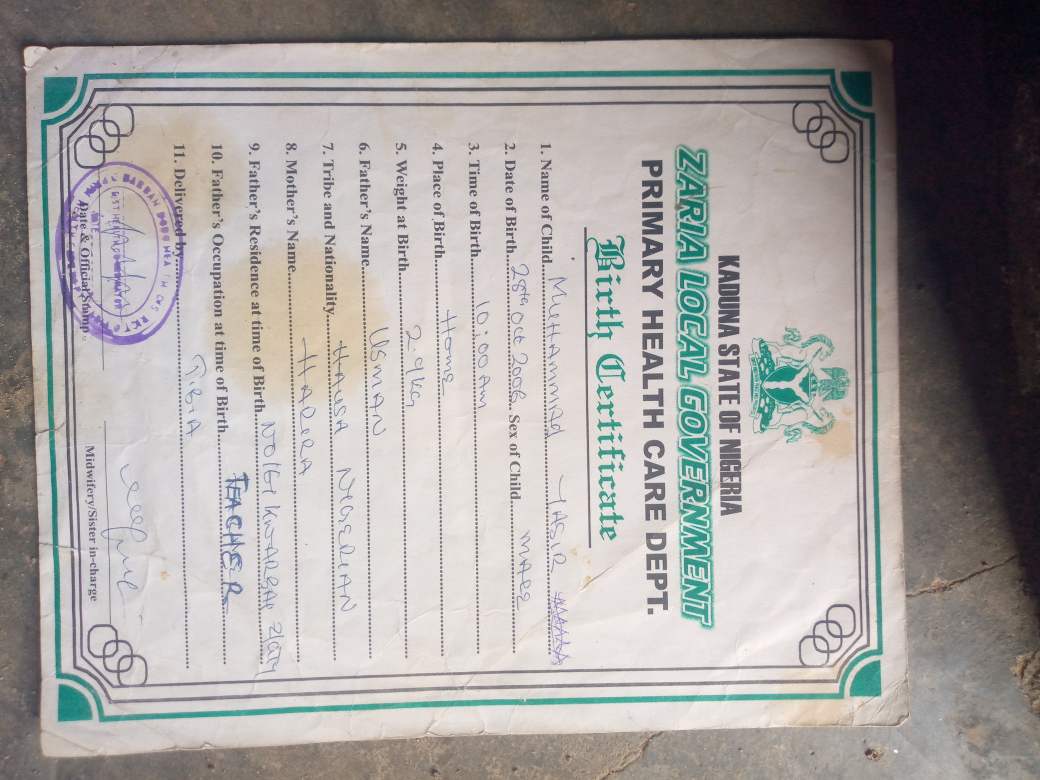 KADUNA STATE OF NIGERIA
ZARIA LOCAL GOVERNMENT
PRIMARY HEALTH CARE DEPT.
Birth Certificate
1. Name of Child MUHAMMAD YASIR
2. Date of Birth 28th Oct 2008 Sex of Child MALE
3. Time of Birth 10:00am
4. Place of Birth Home
5. Weight at Birth 2.9kg
6. Father's Name USMAN
7. Tribe and Nationality HAUSA NIGERIAN
8. Mother's Name
9. Father's Residence at time of Birth
10. Father's Occupation at time of Birth TEACHER
11. Delivered by
Date & Official Stamp
Midwifery/Sister in-charge